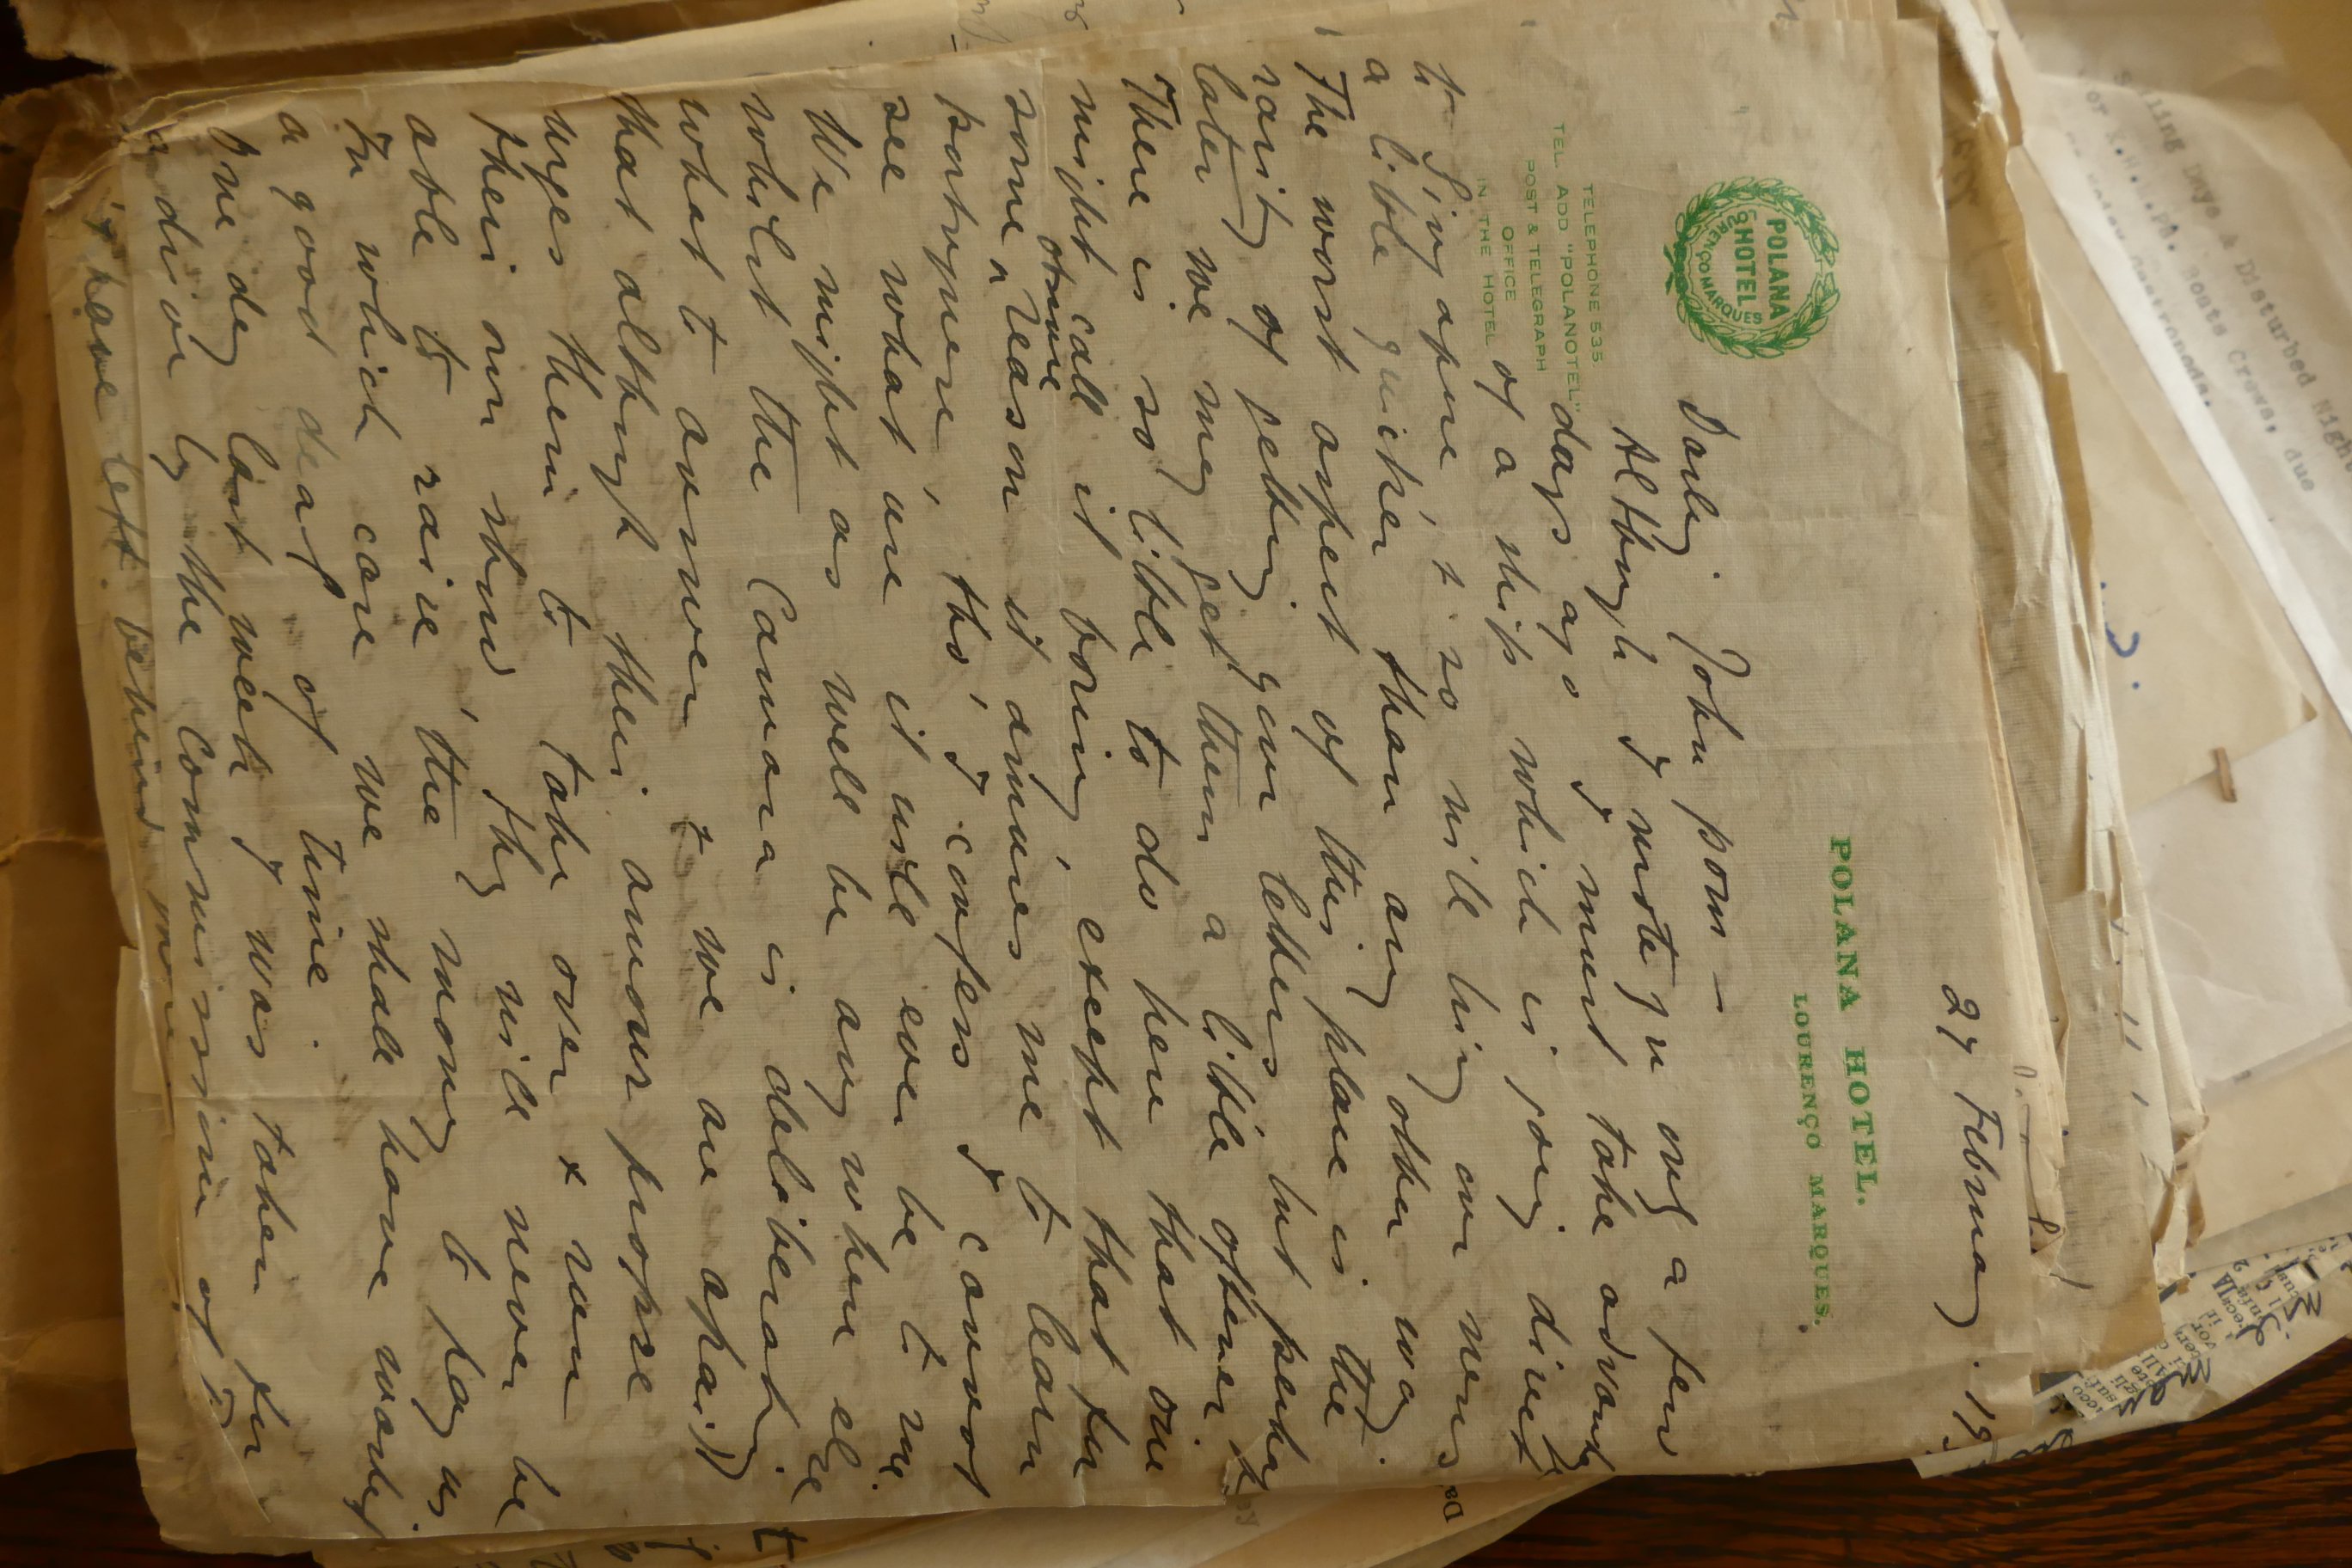 Days & Disturbed
Boats Crews, due
27 February. 19
POLANA HOTEL.
LOURENÇO MARQUES.
POLANA
HOTEL
LOURENÇO MARQUES
TELEPHONE 535.
TEL. ADD "POLANOTEL"
POST & TELEGRAPH
OFFICE
IN THE HOTEL
Darling John pom —
Although I wrote you only a few
days ago I must take advantage
of a ship which is going direct
to Singapore, & so will bring our news
a little quicker than any other way.
The worst aspect of this place is the
rarity of getting your letters, but perhaps
later we may get them a little oftener.
There is so little to do here that one
might call it boring, except that for
some obscure reason it amuses me to learn
portuguese, tho' I confess I cannot
see what use it will ever be to me.
We might as well be anywhere else
whilst the Camara is deliberating
what to answer & we are afraid
that although their amour propre
urges them to take over & run
their own show, they will never be
able to raise the money to pay us.
In which case we shall have wasted
a good deal of time.
One day last week I was taken for
a drive by the Commissioner of
& have left behind